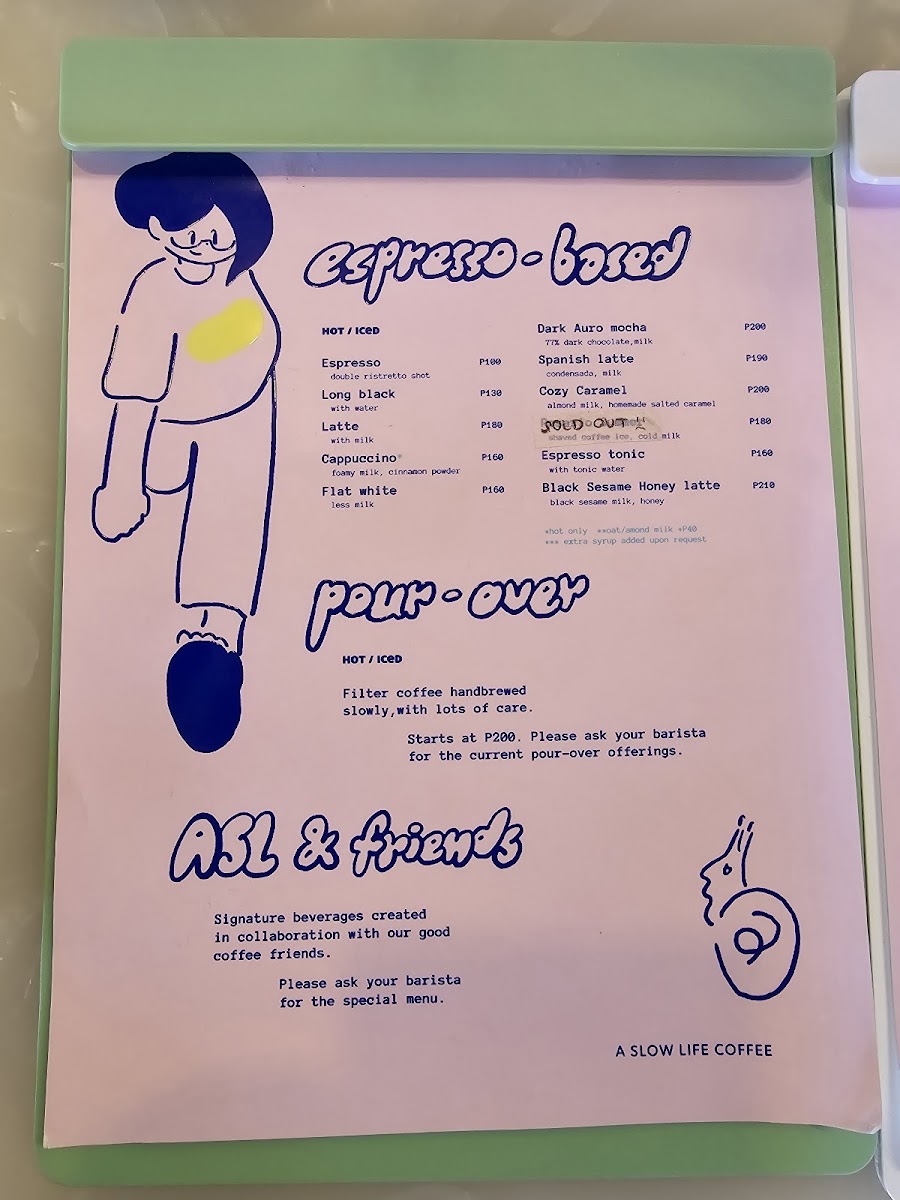 espresso-based
HOT / ICED
Espresso P100
double ristretto shot
Long black P130
with water
Latte P180
with milk
Cappuccino* P160
foamy milk, cinnamon powder
Flat white P160
less milk
Dark Auro mocha P200
77% dark chocolate,milk
Spanish latte P190
condensada, milk
Cozy Caramel P200
almond milk, homemade salted caramel
SOLD OUT P180
shaved coffee ice, cold milk
Espresso tonic P160
with tonic water
Black Sesame Honey latte P210
black sesame milk, honey
*hot only **oat/amond milk +P40
*** extra syrup added upon request
pour-over
HOT / ICED
Filter coffee handbrewed
slowly,with lots of care.
Starts at P200. Please ask your barista
for the current pour-over offerings.
ASL & friends
Signature beverages created
in collaboration with our good
coffee friends.
Please ask your barista
for the special menu.
A SLOW LIFE COFFEE